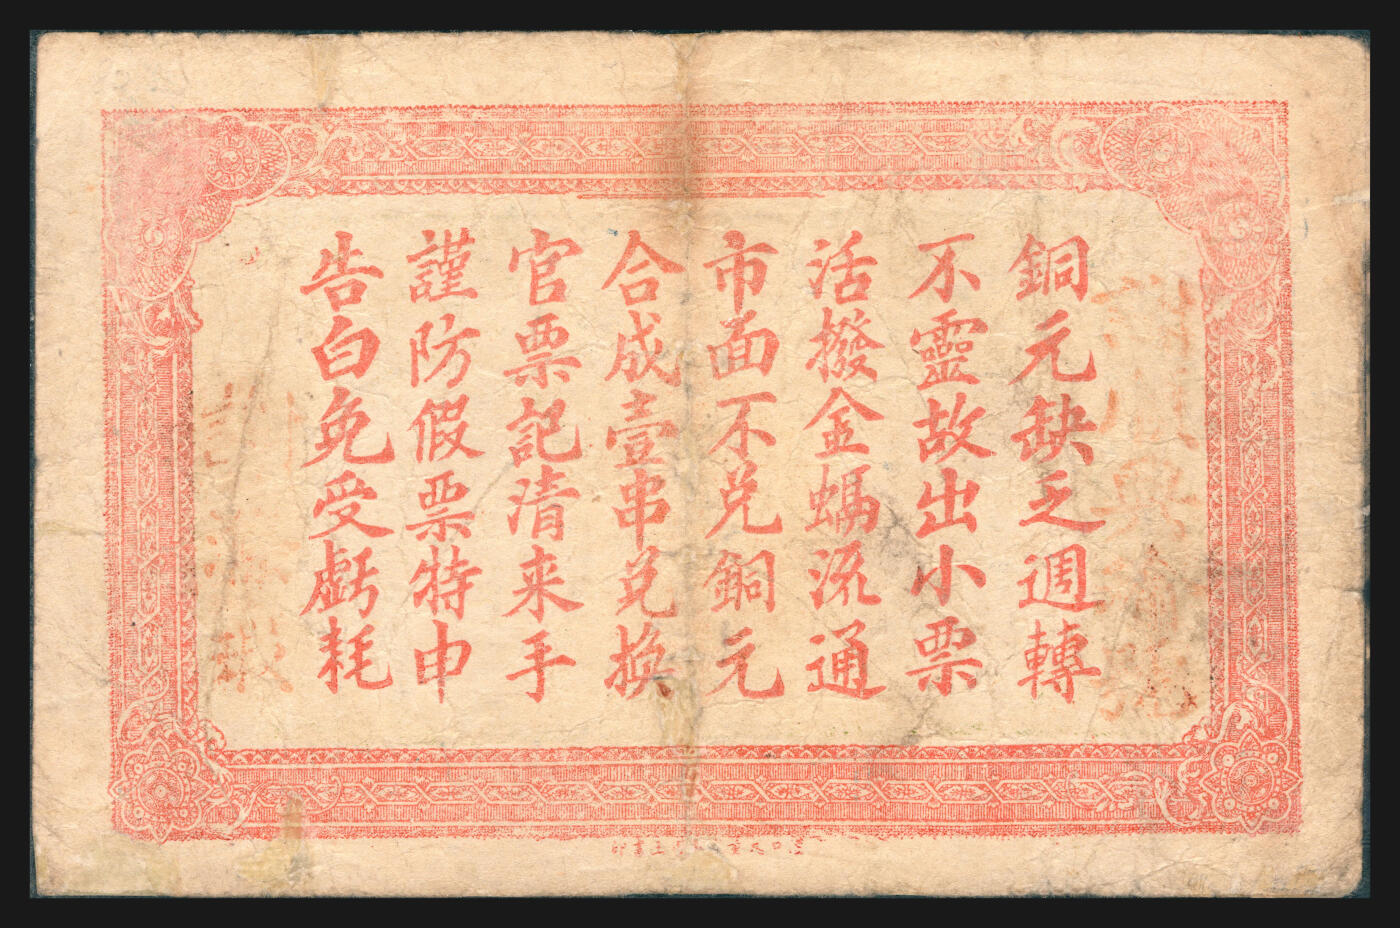 銅元缺乏週轉
不靈故出小票
活撥金螞流通
市面不兑銅元
合成壹串兑换
官票記清来手
謹防假票特申
告白免受虧耗